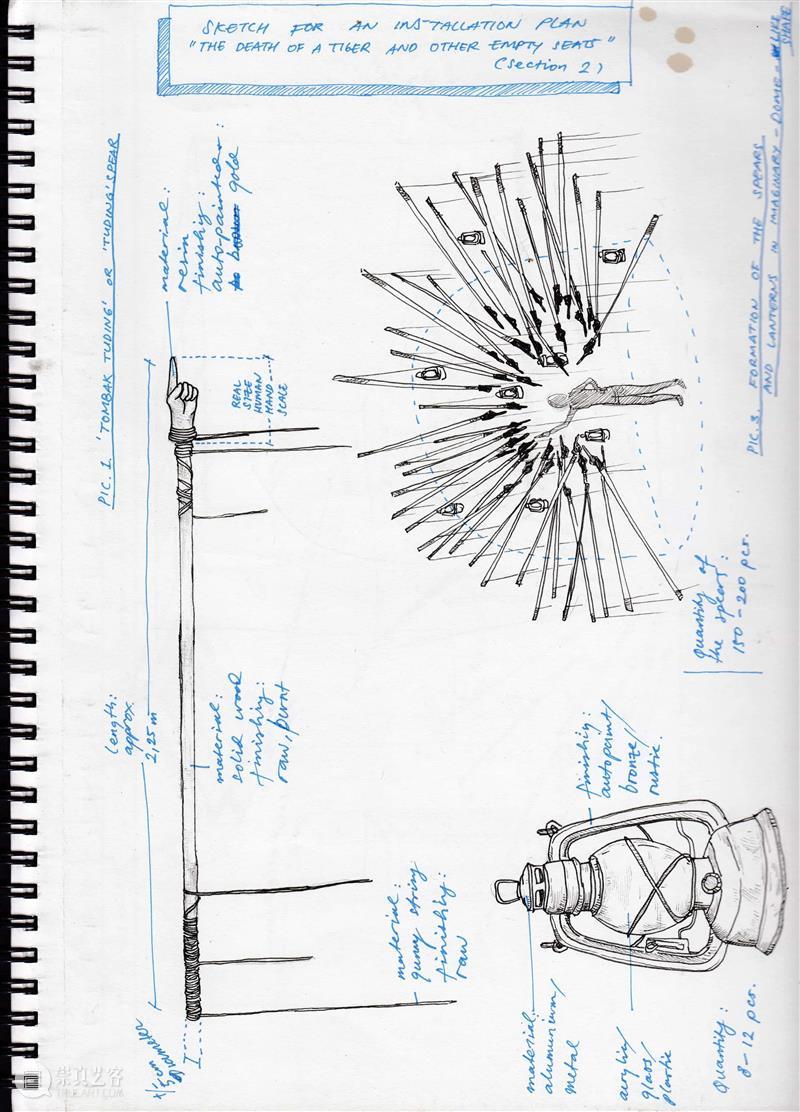 SKETCH FOR AN INSTALLATION PLAN
"THE DEATH OF A TIGER AND OTHER EMPTY SEATS"
(Section 2)
PIC. 1. 'TOMBAK TUDING' OR 'TUDING' SPEAR
material:
resin
finishing:
auto-painted:
gold
REAL
SIZE
HUMAN
HAND
SCALE
Length:
approx.
2,25 m
material:
solid wood
finishing:
raw, burnt
material:
gunny string
finishing:
raw
+/- 5 cm
Diameter
PIC. 3. FORMATION OF THE SPEARS
AND LANTERNS IN IMAGINARY-DOME-LIKE
SHAPE
Quantity of
the spears:
150-200 pcs.
finishing:
autopaint/
bronze/
rustic.
material:
aluminium/
metal
acrylic/
glass/
plastic
Quantity:
8-12 pcs.
崇真艺客
TRUEART.COM